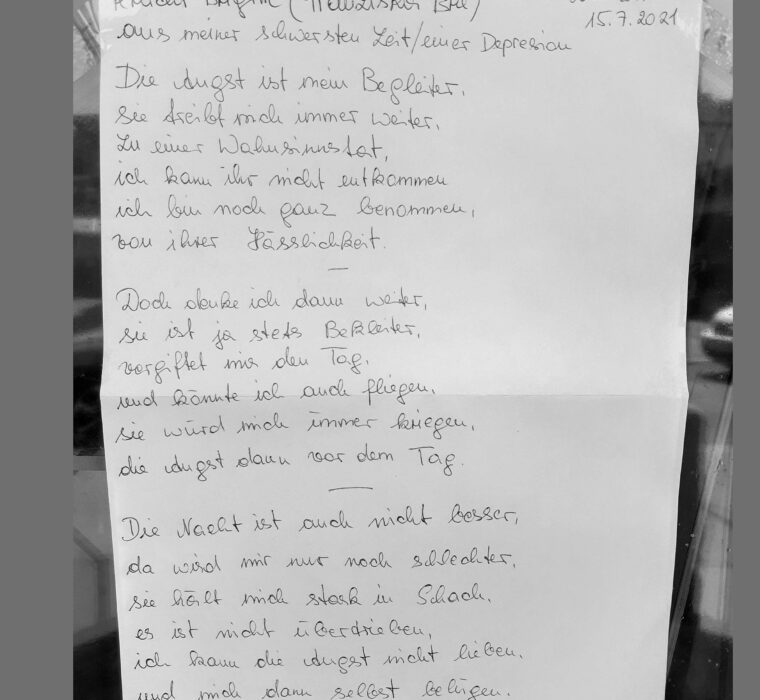 15.7.2021
aus meiner schwersten Zeit/einer Depression
Die Angst ist mein Begleiter,
sie treibt mich immer weiter,
zu einer Wahnsinnstat,
ich kann ihr nicht entkommen
ich bin noch ganz benommen,
von ihrer Hässlichkeit.
Doch denke ich dann weiter,
sie ist ja stets Begleiter,
vergiftet mir den Tag,
und könnte ich auch fliegen,
sie würd mich immer kriegen,
die Angst dann vor dem Tag.
Die Nacht ist auch nicht besser,
da wird mir nur noch schlechter,
sie hält mich stark in Schach.
es ist nicht überdrieben,
ich kann die Angst nicht lieben.
und mich dann selbst belügen.